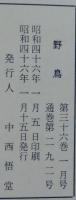 野鳥 第三十六巻 一月号
通巻第二九二号
昭和四十六年一月五日印刷
昭和四十六年一月十五日発行
発行人 中西悟堂